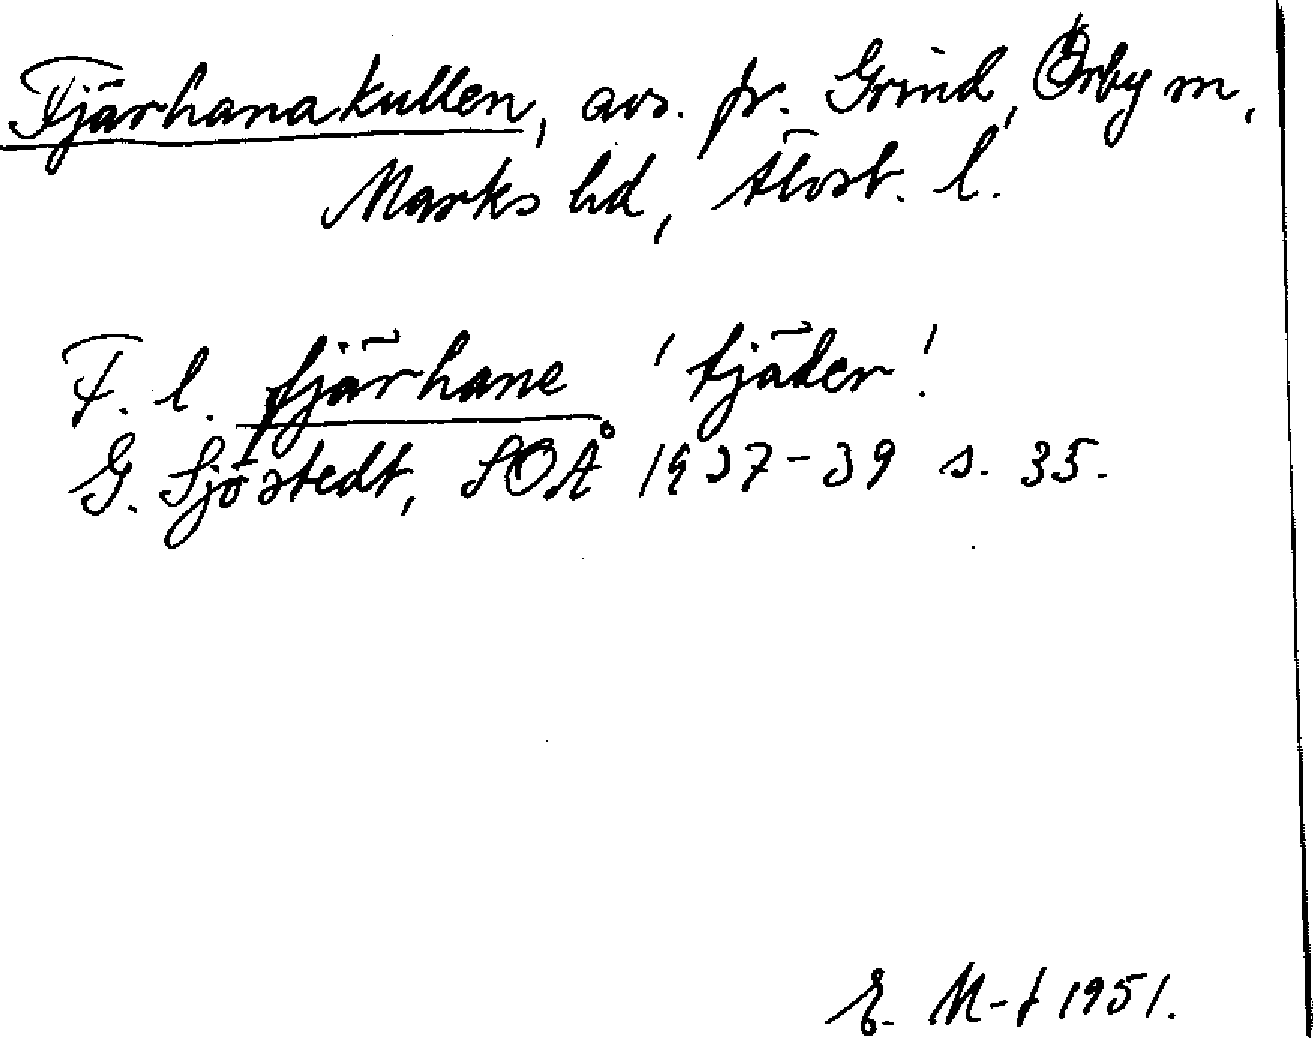 Fjärhanakullen, avs. fr. Grind, Örby sn,
Marks hd, Älvsb. l.
F. l. fjärhane 'tjäder'.
G. Sjöstedt, SOÅ 1937-39 s. 35.
E. M-t 1951.